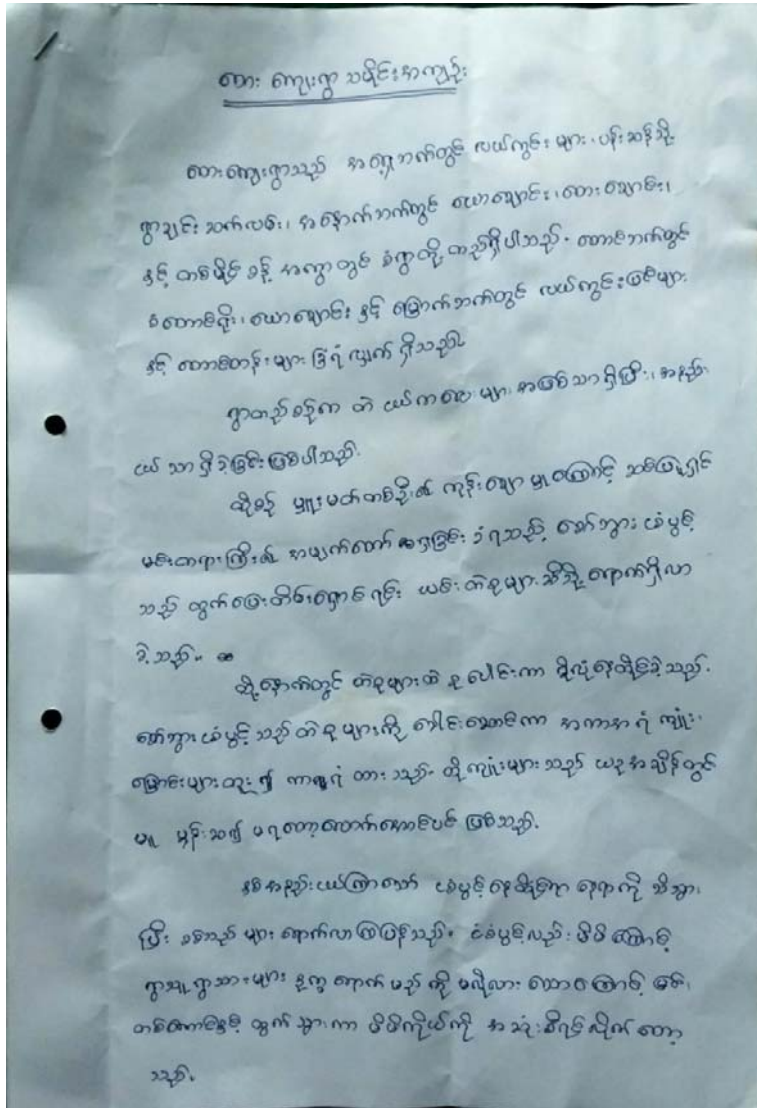 ထား ကျေးရွာ သမိုင်းအကျဉ်း
ထားကျေးရွာသည် အရှေ့ဘက်တွင် လယ်ကွင်း များ ၊ ပန်းဆန်သို့
ရွာချင်း ဆက်လမ်း၊ အနောက်ဘက်တွင် ယောချောင်း ၊ ထားချောင်း ၊
နှင့် တစ်မိုင် ခန့် အကွာ တွင် ခံရွာတို့ တည်ရှိပါသည်။ တောင်ဘက်တွင်
ခံတောင်ရိုး ၊ ယောချောင်း နှင့် မြောက်ဘက်တွင် လယ်ကွင်းပြင်များ
နှင့် တောင်တန်း များ ခြံရံ လျှက် ရှိသည်။
ရွာတည်စဉ်က တဲ ငယ်ကလေး များ အဖြစ်သာ ရှိပြီး ၊ အနည်း
ငယ် သာ ရှိခဲ့ခြင်း ဖြစ်ပါသည်။
ထိုစဉ် မှူးမတ်တစ်ဦး၏ ကုန်းချော မှုကြောင့် ဆင်ဖြူရှင်
မင်းတရားကြီး၏ အမျက်တော် ရှခြင်း ခံရသည့် တော်ဘွား ငံပွင့်
သည် ထွက်ပြေးတိမ်းရှောင်ရင်း ယင်းတဲစုများ ဆီသို့ ရောက်ရှိလာ
ခဲ့သည်။
ထို့နောက်တွင် တဲစုများထဲ စုပေါင်းကာ ခိုလှုံနေထိုင်ခဲ့သည်။
တော်ဘွား ငံပွင့် သည် တဲစု များကို ခေါင်းဆောင်ကာ အကာအရံ ကျုံး ၊
မြောင်းများတူး ၍ ကာရံ ထား သည်။ ထိုကျုံးများသည် ယခုအချိန်တွင်
မူ မှန်းဆ၍ မရတော့လောက်အောင်ပင် ဖြစ်သည်။
နှစ်အနည်းငယ်ကြာသော် ငံပွင့် နေထိုင်ရာ နေရာကို သိသွား
ပြီး စစ်သည် များ ရောက်လာကြပြန်သည်။ ငံပွင့်လည်း မိမိ ကြောင့်
ရွာသူ ရွာသားများ ဒုက္ခ ရောက် မည် ကို မလိုလား သောကြောင့် မြင်း
တစ်ကောင်နှင့် ထွက် သွားကာ မိမိကိုယ်ကို အဆုံးစီရင်လိုက် တော့
သည်။